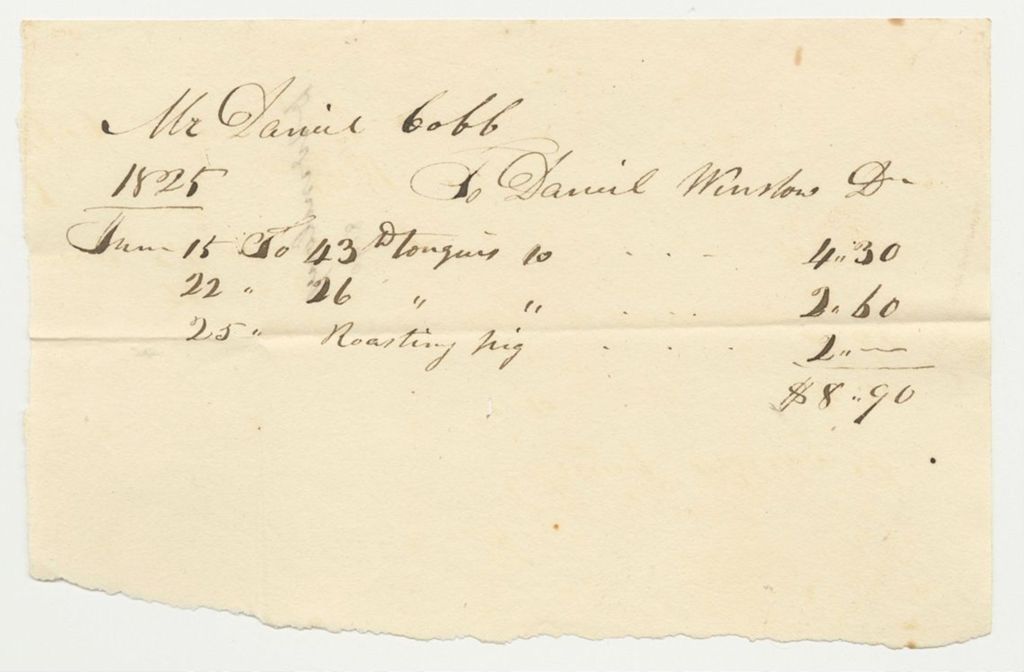 Mr Daniel Cobb
1825 To Daniel Winslow Dr
June 15 To 43 lb tongues 10 . . . 4"30
22 " 26 " " . . . 2"60
25 " Roasting pig . . . . 2"—
$8"90